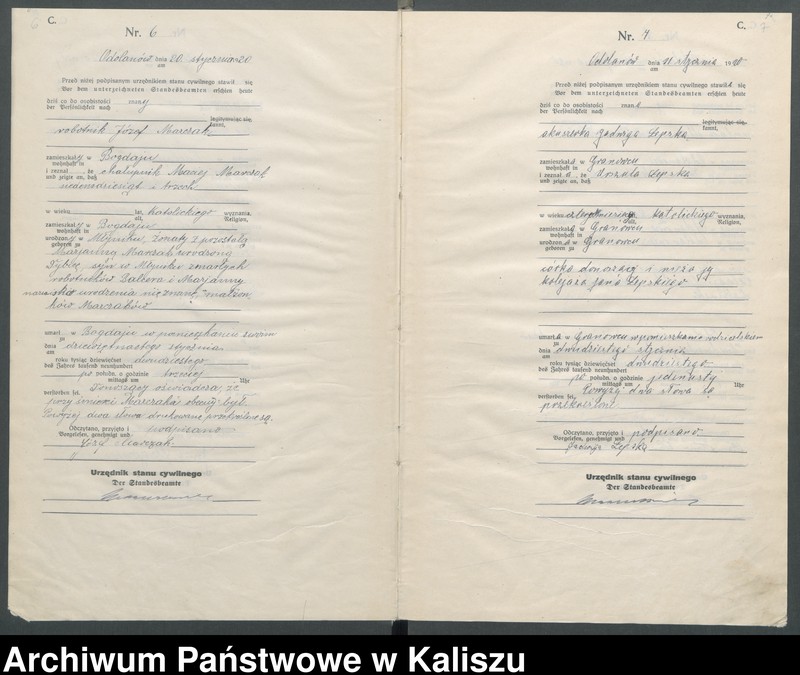 C.
Nr. 6
Odolanów dnia 20 stycznia 20
am
Przed niżej podpisanym urzędnikiem stanu cywilnego stawił się
Vor dem unterzeichneten Standesbeamten erschien heute
dziś co do osobistości znany
der Persönlichkeit nach
legitymując się,
kannt,
robotnik Józef Marczak
zamieszkały w Bogdaju
wohnhaft in
i zeznał, że chałupnik Maciej Marczak
und zeigte an, daß
siedemdziesiąt i trzech
w wieku lat, katolickiego wyznania,
alt, Religion,
zamieszkały w Bogdaju
wohnhaft in
urodzony w Młyniku, żonaty z pozostałą
geboren zu
Marjanną Marczak urodzoną
syn w Młyniku zmarłych
robotników i Marjanny
urodzenia nieznane, małżon
ków Marczaków
umarł w Bogdaju w pomieszkaniu swoim
zu
dnia dziewiętnastego stycznia
am
roku tysiąc dziewięćset dwudziestego
des Jahres tausend neunhundert
po połudn. o godzinie trzeciej
mittags um Uhr
verstorben sei. Donoszący oświadcza, że
przy śmierci Marczaka obecny był.
Powyżej dwa słowa drukowane przekreślone są.
Odczytano, przyjęto i podpisano
Vorgelesen, genehmigt und
Józef Marczak
Urzędnik stanu cywilnego
Der Standesbeamte
C. 7
Nr. 7
Odolanów dnia 21 stycznia 1920
am
Przed niżej podpisanym urzędnikiem stanu cywilnego stawiła się
Vor dem unterzeichneten Standesbeamten erschien heute
dziś co do osobistości znana
der Persönlichkeit nach
legitymując się,
kannt,
akuszerka Jadwiga Lepska
zamieszkała w Granowcu
wohnhaft in
i zeznała, że Urszula Lepska
und zeigte an, daß
w wieku katolickiego wyznania,
alt, Religion,
zamieszkała w Granowcu
wohnhaft in
urodzona w Granowcu
geboren zu
córka donoszącej i męża jej
kołodzieja Jana Lepskiego
umarła w Granowcu w pomieszkaniu rodzicielskiem
zu
dnia dwudziestego stycznia
am
roku tysiąc dziewięćset dwudziestego
des Jahres tausend neunhundert
po połudn. o godzinie jedenastej
mittags um Uhr
verstorben sei. Powyżej dwa słowa są
przekreślone
Odczytano, przyjęto i podpisano
Vorgelesen, genehmigt und
Jadwiga Lepska
Urzędnik stanu cywilnego
Der Standesbeamte
Archiwum Państwowe w Kaliszu